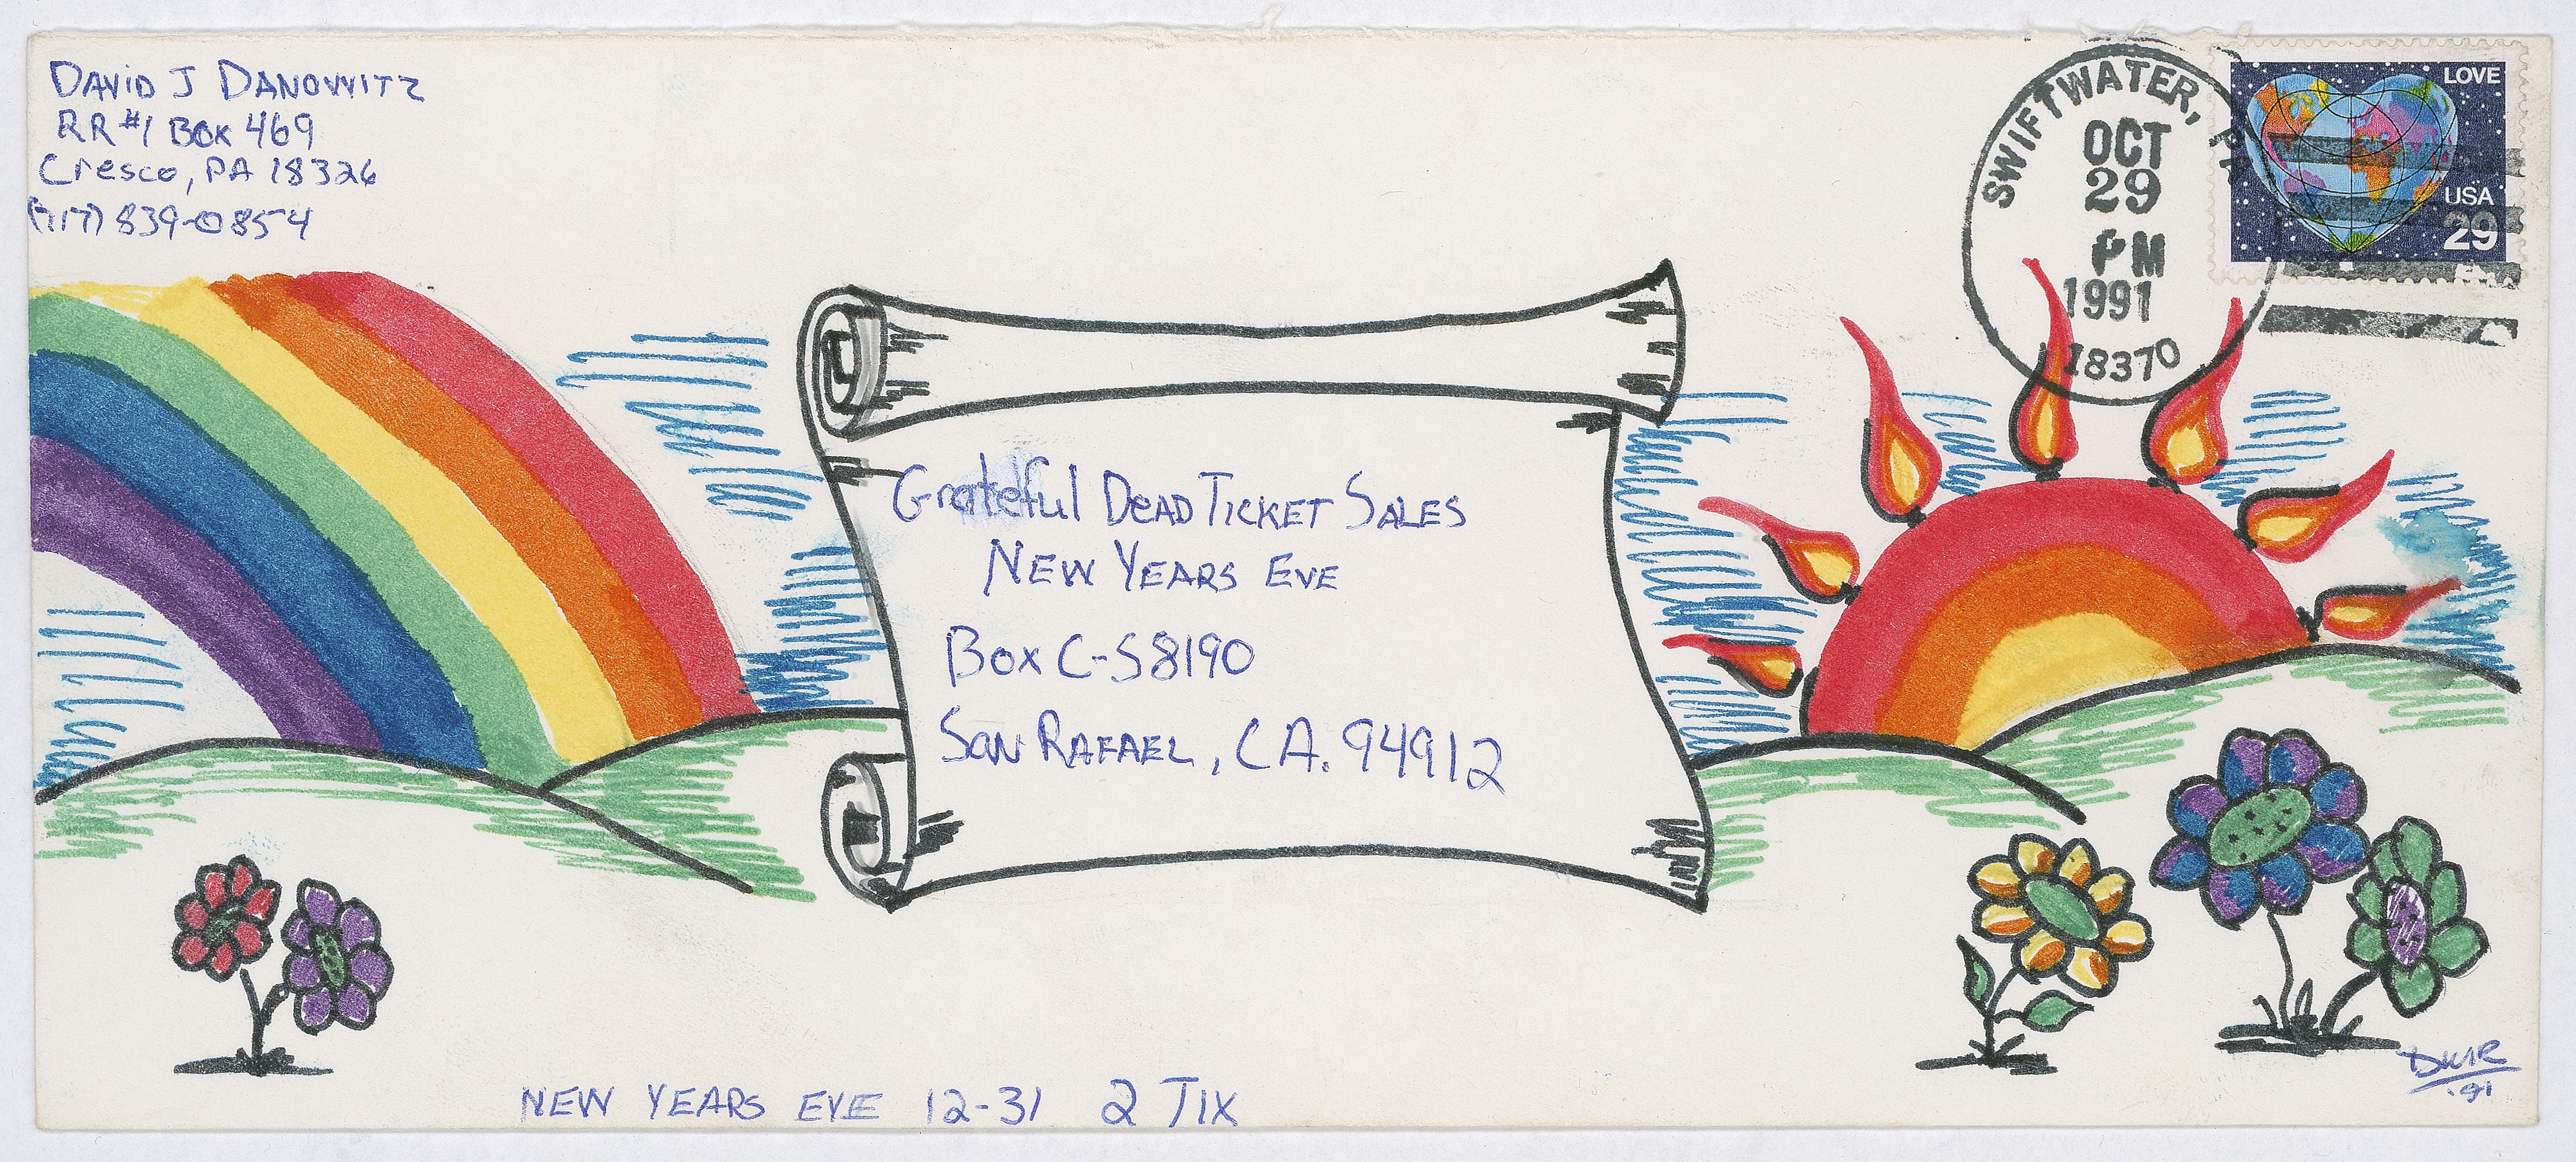 DAVID J DANOWITZ
RR #1 BOX 469
Cresco, PA 18326
(717) 839-0854
SWIFTWATER, PA
OCT
29
PM
1991
18370
LOVE
USA
29
Grateful DEAD TICKET SALES
NEW YEARS EVE
BOX C-S8190
SAN RAFAEL, CA. 94912
NEW YEARS EVE 12-31 2 TIX
DWR
.91